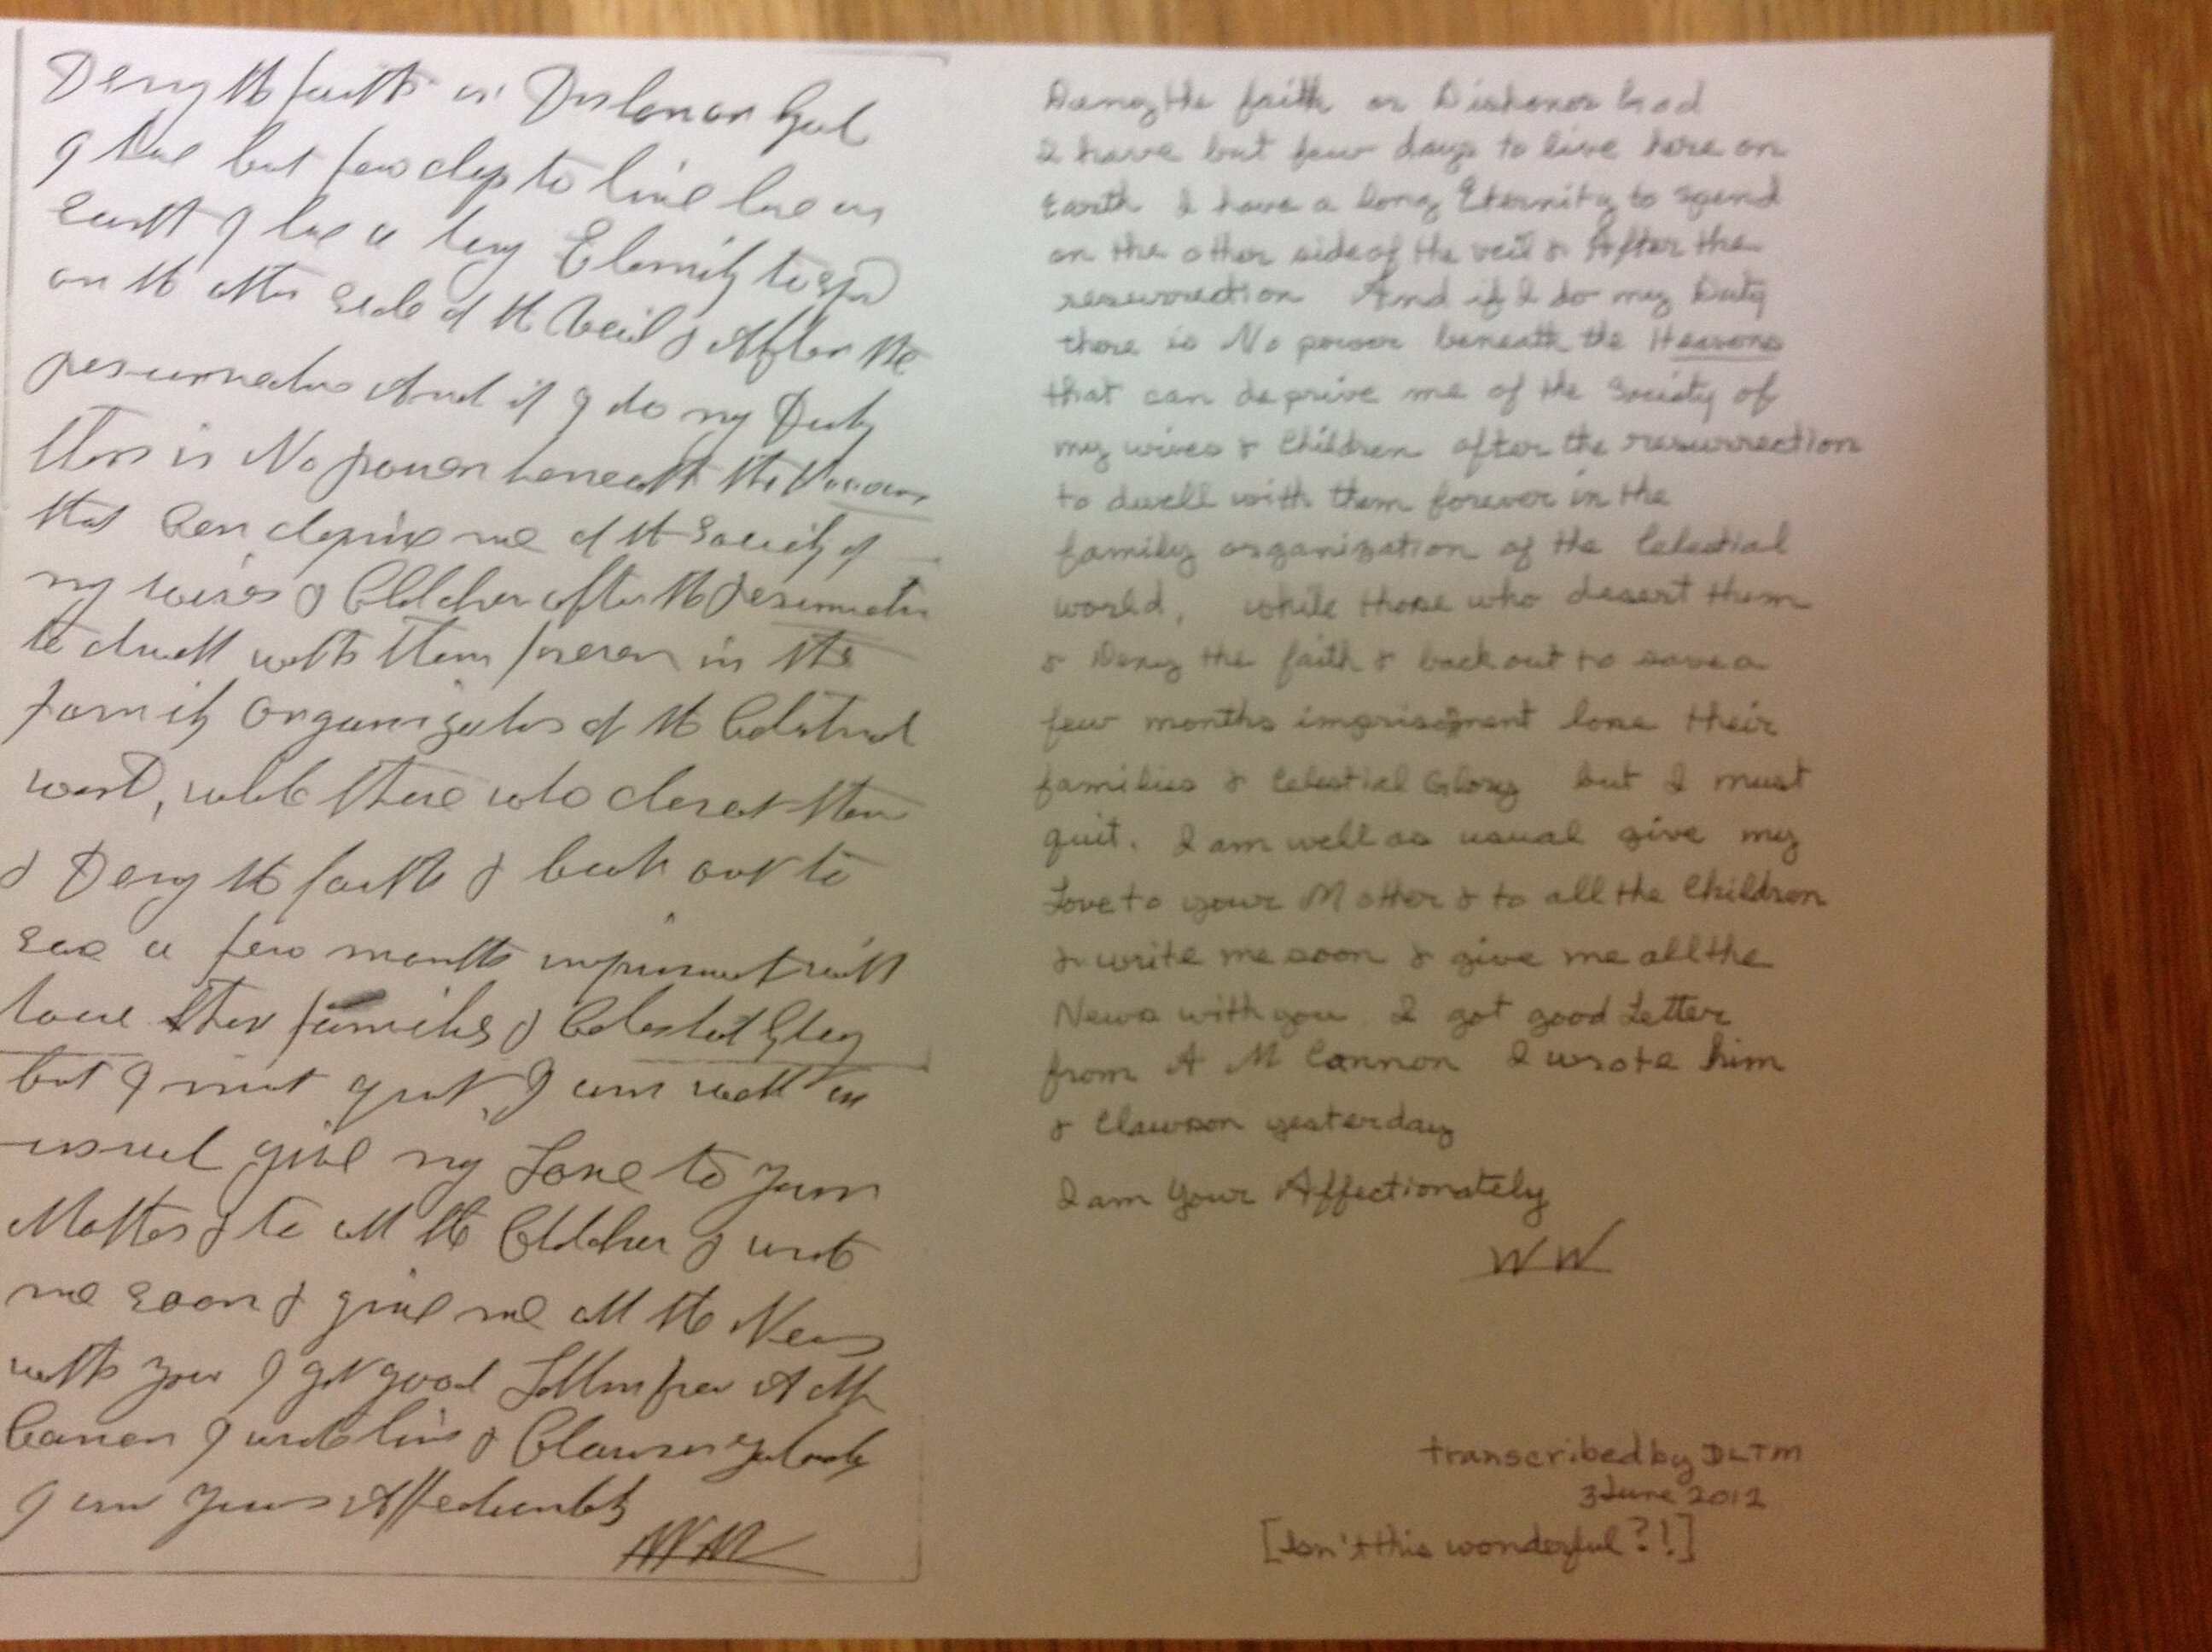 Deny the faith or Dishonor God
I have but few days to live here on
Earth I have a long Eternity to spend
on the other side of the Veil & After the
resurrection And if I do my Duty
there is No power beneath the Heavens
that Can deprive me of the Society of
my wives & Children after the resurrection
to dwell with them forever in the
family Organization of the Celestial
world, while those who desert them
& Deny the faith & back out to
save a few months imprisonment will
loose their families & Celestial Glory
but I must quit, I am well as
usual give my Love to your
Mother & to all the Children & write
me soon & give me all the News
with you I got good Letter from A M
Cannon I wrote him & Clawson yesterday
I am Yours Affectionately
WW
Deny the faith or Dishonor God
I have but few days to live here on
Earth I have a long Eternity to spend
on the other side of the veil & After the
resurrection And if I do my Duty
there is No power beneath the Heavens
that can deprive me of the Society of
my wives & Children after the resurrection
to dwell with them forever in the
family organization of the Celestial
world, while those who desert them
& Deny the faith & back out to save a
few months imprisonment lose their
families & Celestial Glory but I must
quit. I am well as usual give my
Love to your Mother & to all the Children
& write me soon & give me all the
News with you I got good Letter
from A M Cannon I wrote him
& Clawson yesterday
I am Your Affectionately
WW
transcribed by DLTM
3 June 2012
[Isn't this wonderful?!]